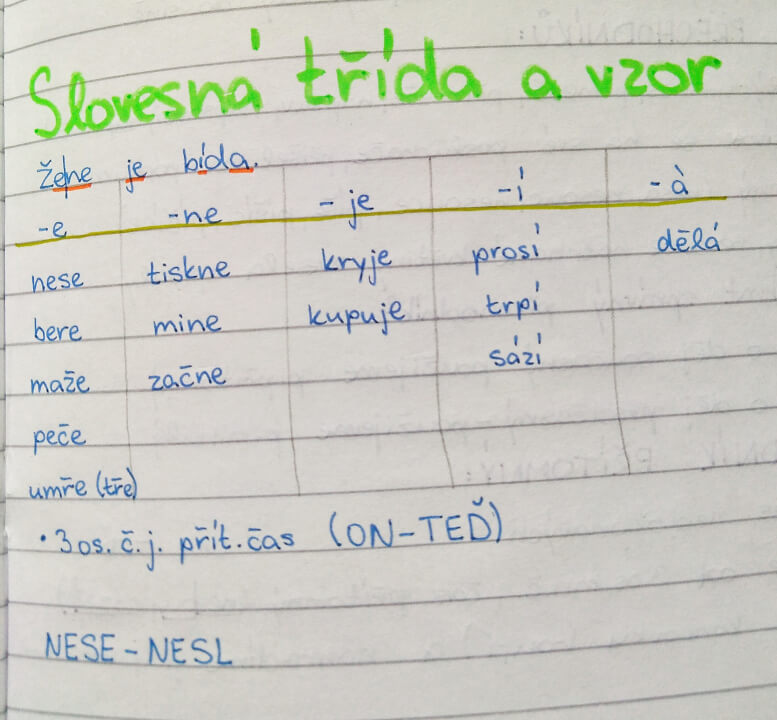 Slovesná třída a vzor
žene je bída.
-e -ne -je -í -á
nese tiskne kryje prosí dělá
bere mine kupuje trpí
maže začne sází
peče
umře (tře)
• 3os. č. j. přít. čas (ON-TEĎ)
NESE - NESL